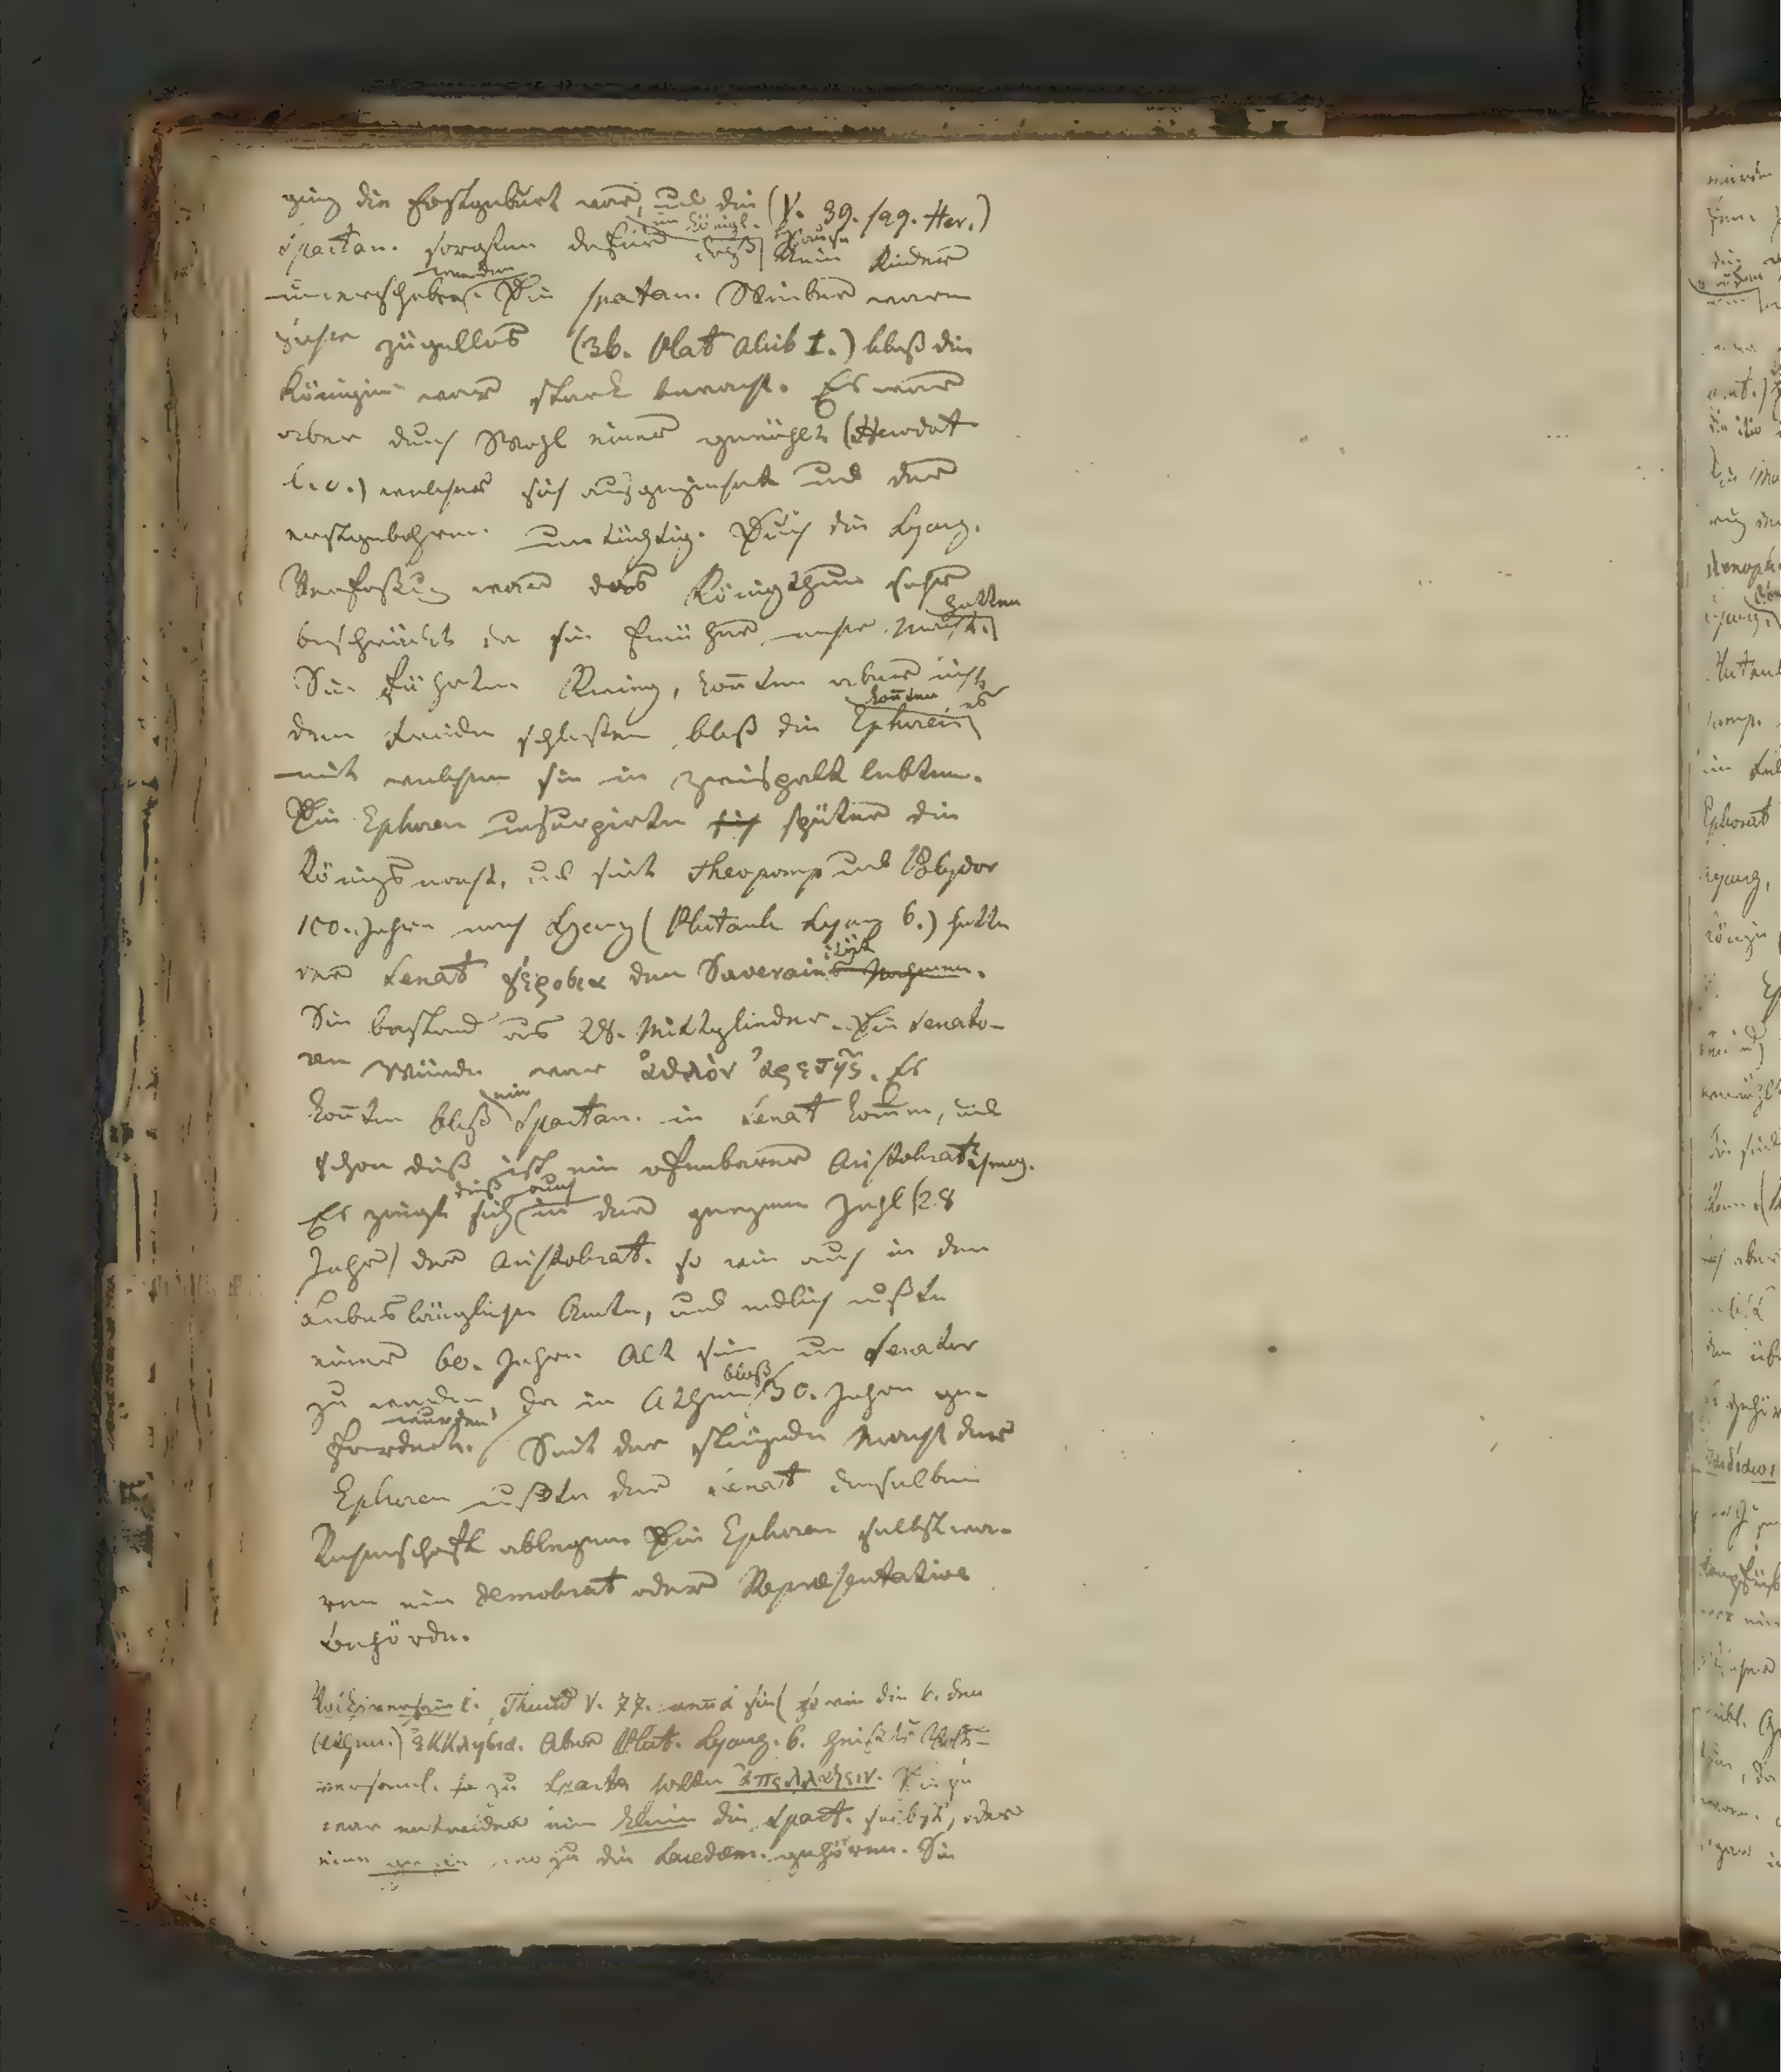 ging die Erstgeburt vor, und die (V. 39. sqq. Her.)
Spartan. sorgten dafür im königl. Hause daß kein Kinder
unterschoben werden. Die spartan. Weiber waren
sehr zügellos (36. Plat Alcib I.) bloß die
Königin war stark bewacht. Es war
aber durch Wahl einer gewählt (Herodot
l. c.) welcher sich ausgezeichnet und der
erstgebohrene untüchtig. Durch die Lycurg.
Verfaßung war das Königthum sehr
beschränkt da sie früher mehr Macht hatten.
Sie führten Krieg, konnten aber nicht
den Frieden schließen bloß die Ephoren konnten es
mit welchen sie in zwiespalt lebten.
Die Ephoren usurpirten sich später die
Königsmacht, und seit Theopomp und Polydor
100. Jahre nach Lycurg (Plutarch Lycurg 6.) hatte
der Senat γέρουσια den Souverain
Sie bestand aus 28. Mittglieder. Die Senato-
ren Würde war ἆθλὸν ἀρετῆς. Es
konnten bloß ein Spartan. in Senat komm, und
schon dieß ist ein offenbarer Aristokratismus.
Es zeigt sich dieß auch in der geringen Zahl (28
Jahr) der Aristokrat. so wie auch in den
Lebenslänglichen Amte, und endlich mußte
einer 60. Jahre Alt sein um Senator
zu werden, da in Athen bloß 30. Jahre ge-
fordert wurden. Seit der steigenden Macht der
Ephoren mußte der Senat denselben
Rechenschaft ablegen. Die Ephoren selbst wa-
ren eine demokrat oder Repræsentative
Behörde.
Volksversam̅l. Thucid V. 77. nennt sie (so wie die b. den
Athen.) ἐκκλησια. Aber Plut. Lycurg. 6. heißt die Volks-
versaml. zu Sparta sollte ἀπελλάζειν. Diese
war entweder eine kleine die Spart. selbst, oder
eine wozu die Lacedæm. gehören. Sie